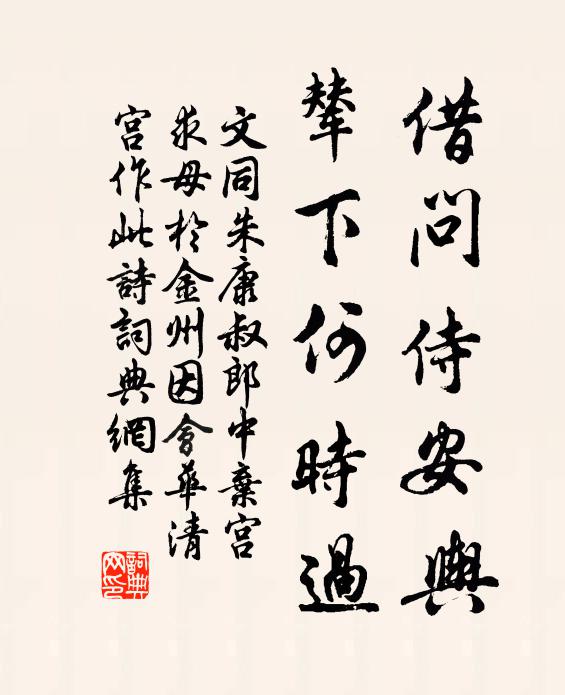 借問侍安輿
輦下何時過
文同朱康叔郎中棄宮
求母於金州因會華清
宮作此詩詞典網集
詞典
网印